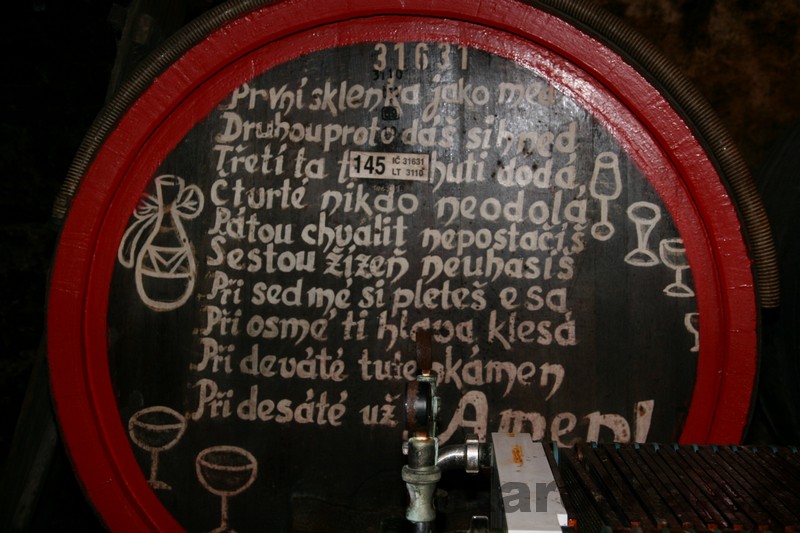 31631
3110
První sklenka jako med
Druhou proto dáš si hned
Třetí ta chuti dodá,
145 IČ 31631
LT 3110
Čtvrté nikdo neodolá
Pátou chválit nepostačíš
Šestou žízeň neuhasíš
Při sedmé si pleteš esa
Při osmé ti hlava klesá
Při deváté tu kámen
Při desáté už Amen!
ar